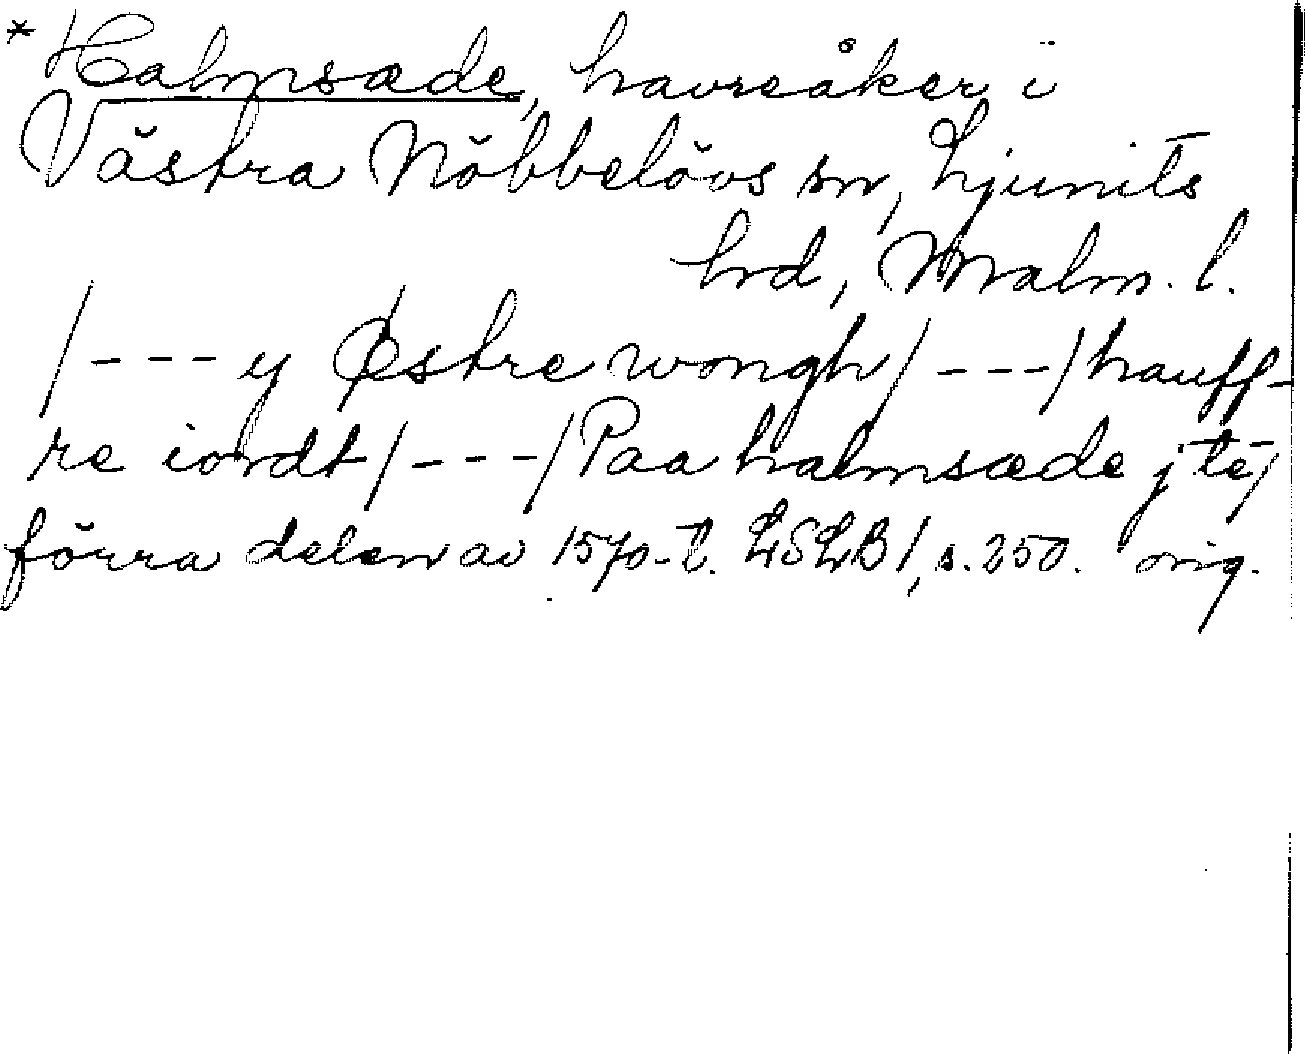 * Halmsæde, havreåker i
Västra Nöbbelövs sn, Ljunits
hrd, Malm. l.
/---y Østre wongh/---/hauff-
re iordt/---/Paa halmsæde j te/
förra delen av 1570-t. LSLB 1, s. 250. orig.